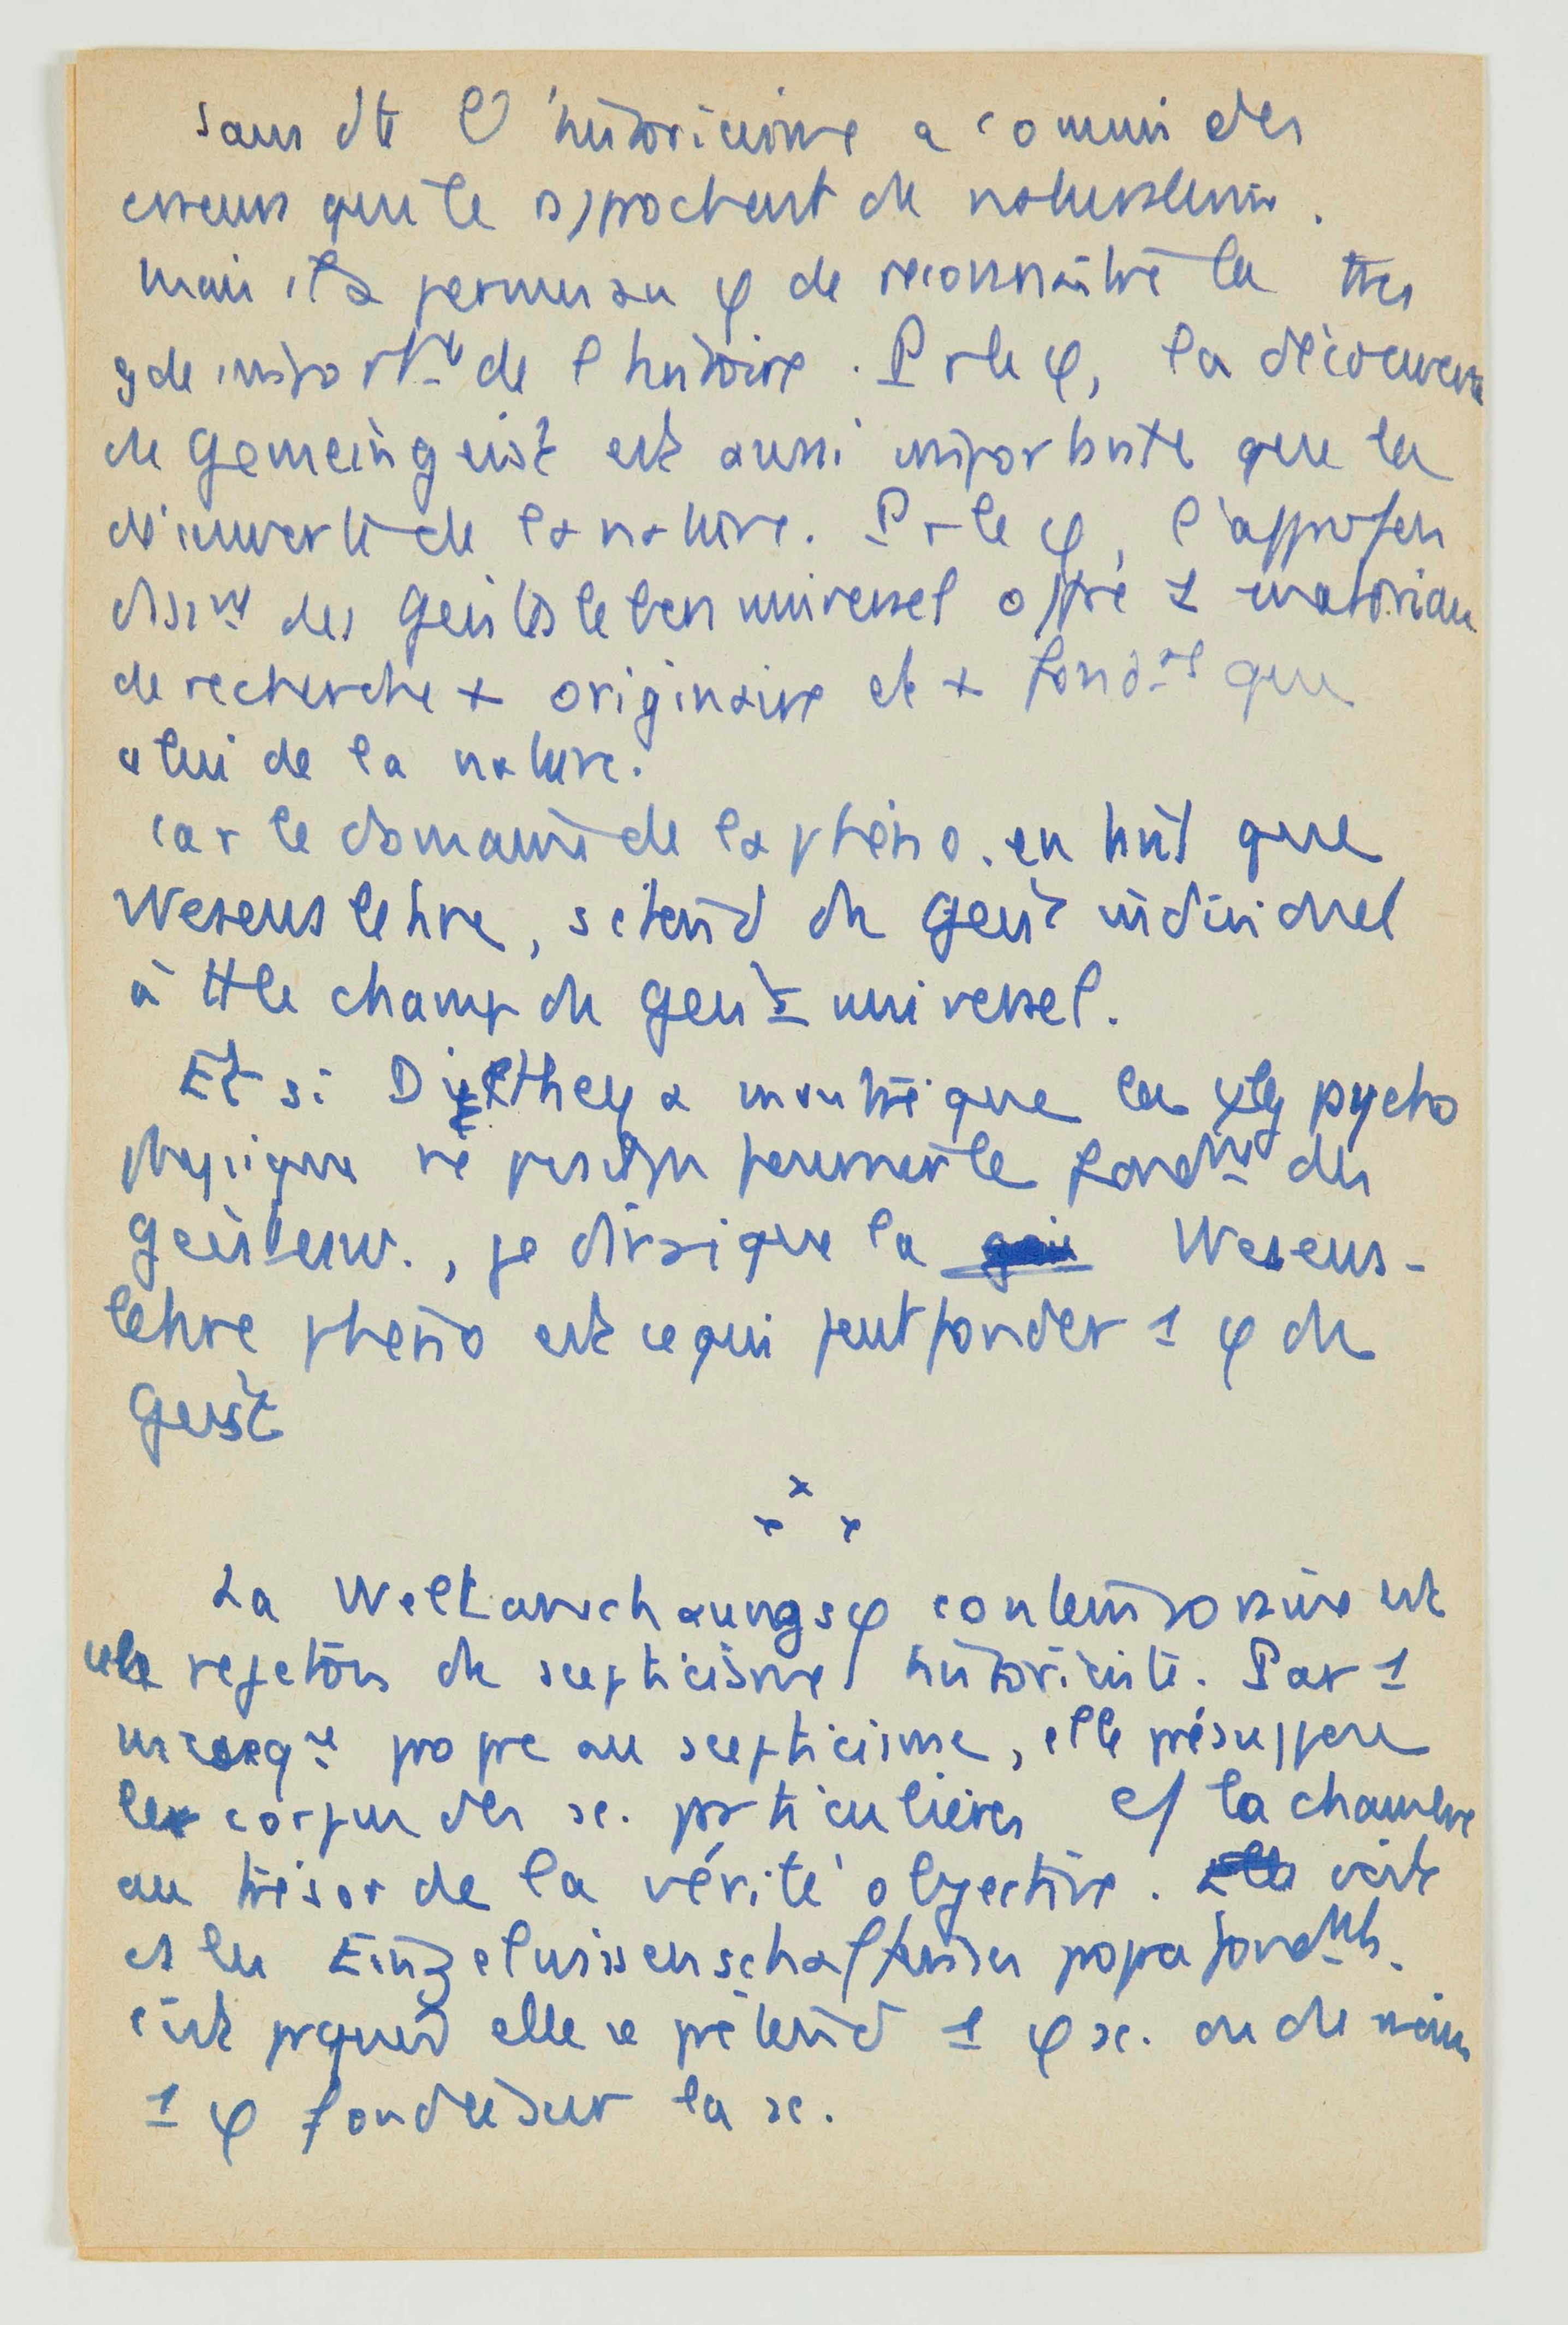 Sans dte l'historicisme a commis des
erreurs qui le rapprochent du naturalisme.
Mais il a permis au φ de reconnaître la très
gde importce de l'histoire. Pr le φ, la découverte
du Gemeingeist est aussi importante que la
découverte de la nature. Pr le φ, l'approfon
dissmt des Geistesleben universel offre 1 matériau
de recherche + originaire et + fondal que
celui de la nature.
Car le domaine de la phéno. en tant que
Wesenslehre, s'étend du Geist individuel
à tt le champ du Geist universel.
Et si Dilthey a montré que la ψlg psycho
physique ne peut pas permettre le fondmt des
Geistesw., je dirai que la Wesens-
lehre phéno est ce qui peut fonder 1 φ du
Geist
x
x x
La Weltanschaungsφ contemporaine est
le rejeton du scepticisme historiciste. Par 1
propre au scepticisme, elle présuppose
le corpus des sc. particulières c/ la chambre
au trésor de la vérité objective.
et les Einzelwissenschaften fondmts.
C'est pquoi elle se prétend 1 φ sc. ou du moins
1 φ fondée sur la sc.